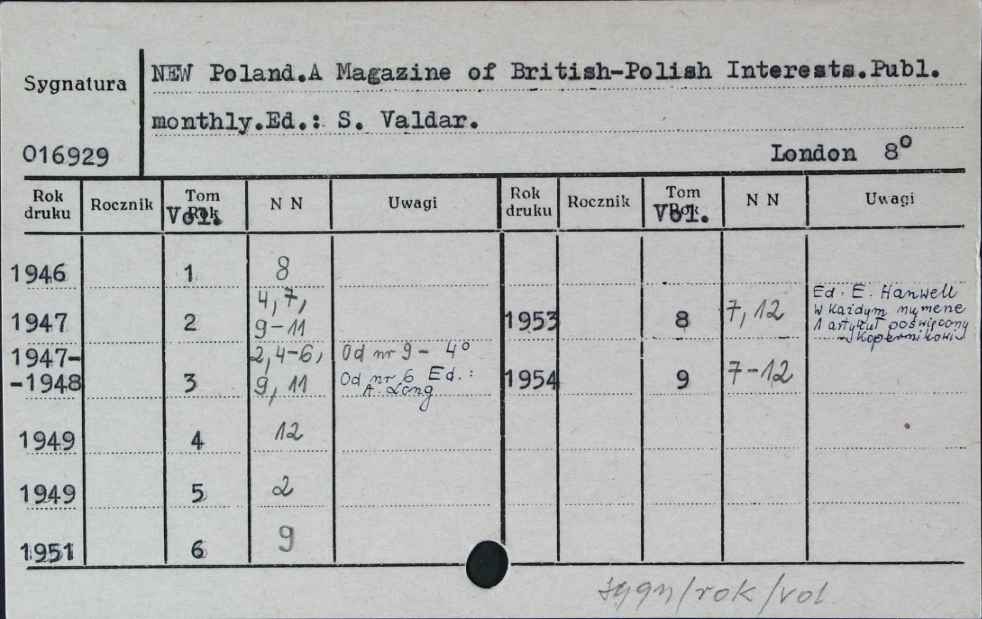 NEW Poland.A Magazine of British-Polish Interests.Publ.
Sygnatura
monthly.Ed.: S. Valdar.
016929
London 8°
Rok druku Rocznik Tom Rok Vol. N N Uwagi Rok druku Rocznik Tom Rok Vol. N N Uwagi
1946 1 8
1947 2 4, 7, 9-11
1953 8 7, 12 Ed. E. Hanwell
W każdym numerze
1 artykuł poświęcony
Kopernikowi
1947-
-1948 3 2, 4-6, 9, 11 Od nr 9 - 4°
Od nr 6 Ed.:
A. Long
1954 9 7-12
1949 4 12
1949 5 2
1951 6 9
sygn/rok/vol